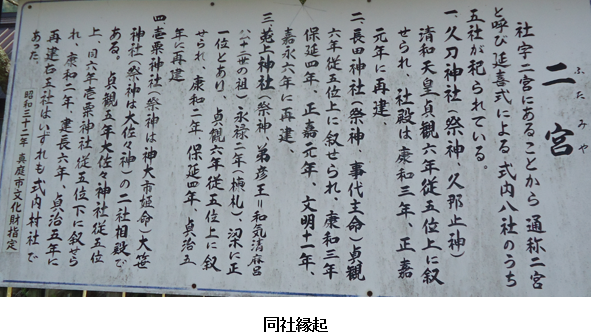 二宮
ふたみや
社字二宮にあることから通称二宮
と呼び延喜式による式内八社のうち
五社が祀られている。
一、久刀神社(祭神、久那止神)
清和天皇貞観六年従五位上に叙
せられ、社殿は康和三年、正嘉
元年に再建、
二、長田神社(祭神、事代主命)貞観
六年従五位上に叙せられ、康和三年
保延四年、正嘉元年、文明十一年、
嘉永六年に再建、
三、菟上神社(祭神、弟彦王=和気清麻呂
八十二世の祖)永禄二年(棟札)、梁に正
一位とあり、貞観六年従五位上に叙
せられ、康和二年、保延四年、貞治五
年に再建
四、壱粟神社(祭神は神大市姫命)大笹
神社(祭神は大佐々神)の二社相殿で
ある。貞観五年大佐々神社従五位
上、同六年壱粟神社従五位下に叙せら
れ、康和二年、建長六年、貞治五年に
再建右五社はいずれも式内村社で
あった。
昭和三十二年 真庭市文化財指定
同社縁起